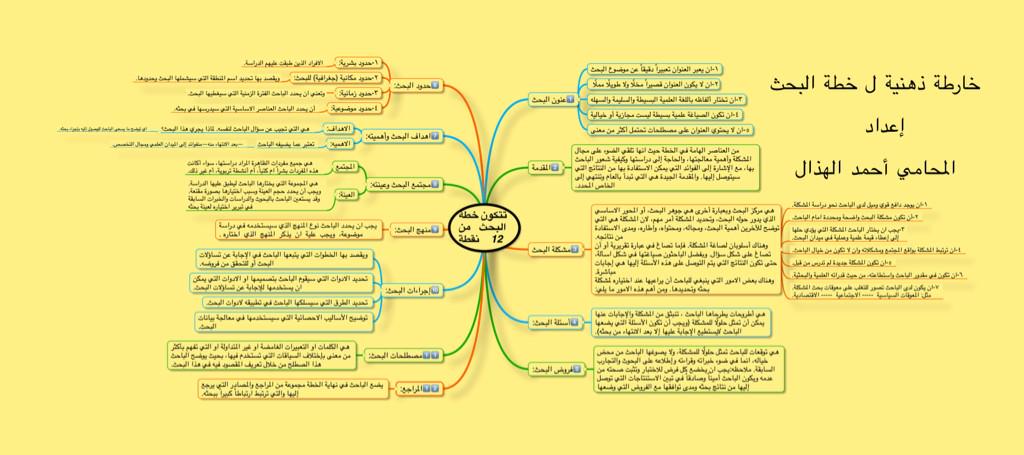 خارطة ذهنية ل خطة البحث
إعداد
المحامي أحمد الهذال
تتكون خطة
البحث من
12 نقطة
عنون البحث
١-ان يعبر العنوان تعبيراً دقيقاً عن موضوع البحث
٢-ان لا يكون العنوان قصيراً مخلًا ولا طويلًا مملًا
٣-ان تختار ألفاظه باللغة العلمية البسيطة والسليمة والسهله
٤-ان تكون الصياغة علمية بسيطة ليست مجازية أو خيالية
٥-ان لا يحتوي العنوان على مصطلحات تحتمل أكثر من معنى
المقدمة
من العناصر الهامة في الخطة حيث انها تلقي الضوء على مجال
المشكلة وأهمية معالجتها، والحاجة إلى دراستها وكيفية شعور الباحث
بها، مع الإشارة إلى الفوائد التي يمكن الاستفادة بها من النتائج التي
سيتوصل إليها. والمقدمة الجيدة هي التي تبدأ بالعام وتنتهي إلى
الخاص المحدد.
مشكلة البحث
هي مركز البحث وبعبارة أخرى هي جوهر البحث، أو المحور الاساسي
الذي يدور حوله البحث، وتحديد المشكلة أمر مهم، لان المشكلة هي التي
توضح للآخرين أهمية البحث، ومجاله، ومحتواه، وأطاره، ومدى الاستفادة
من نتائجه.
وهناك أسلوبان لصاغة المشكلة. فإما تصاغ في عبارة تقريرية أو أن
تصاغ على شكل سؤال. ويفضل الباحثون صياغتها في شكل اسئلة،
حتى تكون النتائج التي يتم التوصل على هذه الأسئلة إليها هي إجابات
مباشرة.
وهناك بعض الامور التي ينبغي للباحث أن يراعيها عند اختياره مشكلة
بحثه وتحديدها. ومن أهم هذه الامور ما يلي:
١-ان يوجد دافع قوي وميل لدى الباحث نحو دراسة المشكلة.
٢-ان تكون مشكلة البحث واضحة ومحددة امام الباحث.
٣-يجب ان يختار الباحث المشكلة التي يؤدي حلها
إلى إعطاء قيمة علمية وعملية في ميدان البحث.
٤-ان ترتبط المشكلة بواقع المجتمع ومشكلاته وان لا تكون من خيال الباحث.
٥-ان تكون المشكلة جديدة لم تدرس من قبل.
٦-ان تكون في مقدور الباحث واستطاعته، من حيث قدراته العلمية والبحثية.
٧-ان يكون لدى الباحث تصور للتغلب على معوقات بحث المشكلة.
مثل: المعوقات السياسية ----- الاجتماعية ----- الاقتصادية.
أسئلة البحث:
هي أطروحات يطرحاها الباحث ، تنبثق من المشكلة والإجابات عنها
يمكن أن تمثل حلولًا للمشكلة (ويجب أن تكون الأسئلة التي يضعها
الباحث لايستطيع الإجابة عليها إلا بعد الانتهاء من بحثه).
فروض البحث:
هي توقعات للباحث تمثل حلولًا للمشكلة، ولا يصوغها الباحث من محض
خياله، انما في ضوء خبراته وقراءته وإطلاعه على البحوث والتجارب
السابقة. ملاحظه:يجب ان يخضع كل فرض للاختبار وتثبت صحته من
عدمه ويكون الباحث أميناً وصادقاً في تبين الاستنتاجات التي توصل
إليها من نتائج بحثه ومدى توافقها مع الفروض التي وضعها
حدود البحث:
١-حدود بشرية:
الافراد الذين طبقت عليهم الدراسة.
٢-حدود مكانية (جغرافية) للبحث:
ويقصد بها تحديد اسم المنطقة التي سيشملها البحث وحدودها.
٣-حدود زمانية:
وتعني ان يحدد الباحث الفترة الزمنية التي سيغطيها البحث.
٤-حدود موضوعية:
أن يحدد الباحث العناصر الاساسية التي سيدرسها في بحثه.
اهداف البحث وأهميته:
الاهداف:
هي التي تجيب عن سؤال الباحث لنفسه. لماذا يجري هذا البحث؟
الاهمية:
تعتبر عما يضيفه الباحث
مجتمع البحث وعينته:
المجتمع
هي جميع مفردات الظاهرة المراد دراستها، سواء أكانت
هذه المفردات بشراً أم كتباً، أم أنشطة تربوية، أم غير ذلك.
العينة:
هي المجموعة التي يختارها الباحث ليطبق عليها الدراسة.
ويجب أن يحدد حجم العينة وسبب اختيارها بصورة مقنعة.
وقد يستعين الباحث بالبحوث والدراسات والخبرات السابقة
في تبرير اختياره لعينة بحثه
منهج البحث:
يجب ان يحدد الباحث نوع المنهج الذي سيستخدمه في دراسة
موضوعة، ويجب علية ان يذكر المنهج الذي اختاره .
إجراءات البحث:
ويقصد بها الخطوات التي يتبعها الباحث في الإجابة عن تساؤلات
البحث أو للتحقق من فروضه.
تحديد الادوات التي سيقوم الباحث بتصميمها او الادوات التي يمكن
ان يستخدمها للإجابة عن تساؤلات البحث.
تحديد الطرق التي سيسلكها الباحث في تطبيقه لادوات البحث.
توضيح الأساليب الاحصائية التي سيستخدمها في معالجة بيانات
البحث.
مصطلحات البحث:
هي الكلمات او التعبيرات الغامضة او غير المتداولة أو التي تفهم بأكثر
من معنى بإختلاف السياقات التي تستخدم فيها، بحيث يوضح الباحث
هذا الصطلح من خلال تعريف المقصود فيه في هذا البحث
المراجع:
يضع الباحث في نهاية الخطة مجموعة من المراجع والمصادر التي يرجع
إليها والتي ترتبط ارتباطاً كبيراً ببحثه.